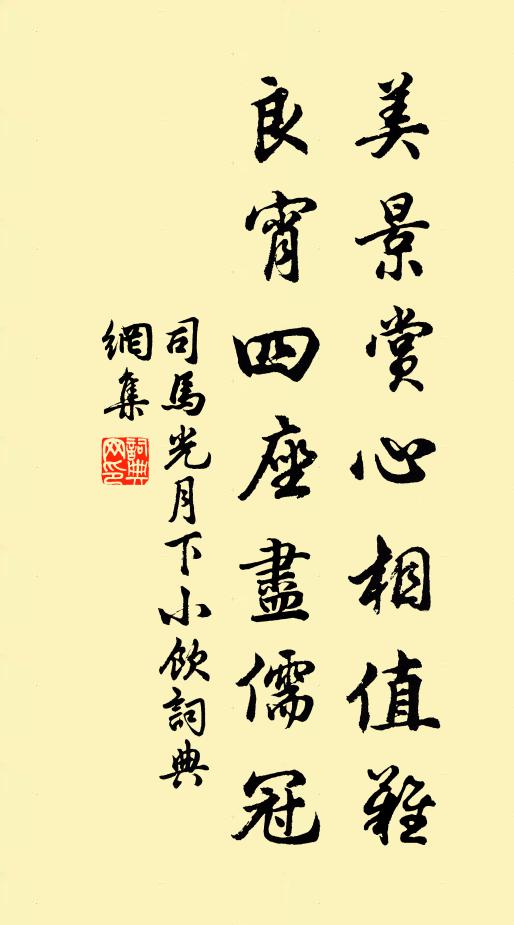 美景賞心相值難
良宵四座盡儒冠
司馬光月下小飲詞典
網集
詞典網印